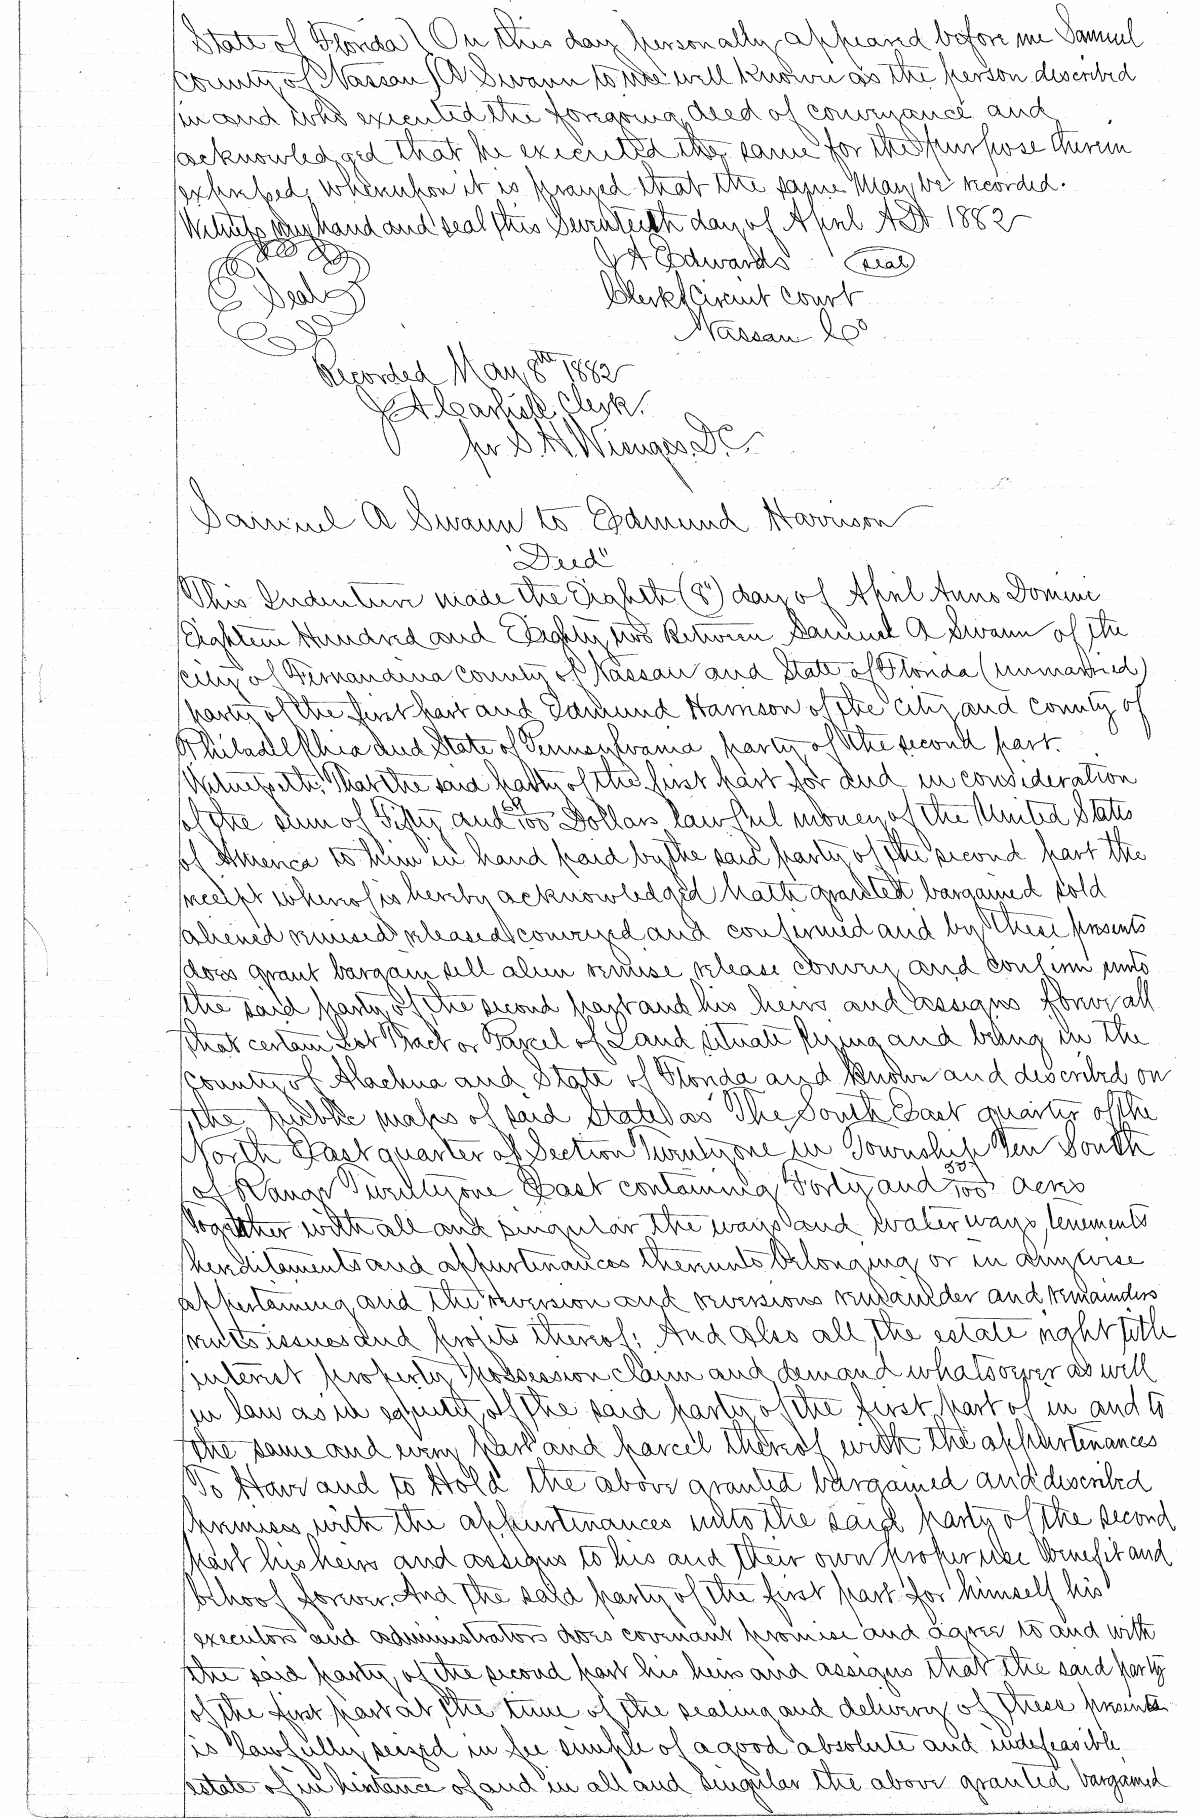 State of Florida } On this day personally appeared before me Samuel
County of Nassau } A Swann to me well known as the person described
in and who executed the foregoing deed of conveyance and
acknowledged that he executed the same for the purpose therein
expressed, whereupon it is prayed that the same may be recorded.
Witness my hand and seal this Seventeeth day of April AD 1882
J A Edwards (seal)
Seal
Clerk Circuit Court
Nassau Co
Recorded May 8th 1882
J A Carlisle Clerk.
pr S. H. D.C.
Samuel A Swann to Edmund Harrison
"Deed"
This Indenture made the Eighth (8") day of April Anno Domini
Eighteen Hundred and Eighty two Between Samuel A Swann of the
city of Fernandina county of Nassau and State of Florida (unmarried)
party of the first part and Edmund Harrison of the city and county of
Philadelphia and State of Pennsylvania party of the second part.
Witnesseth: That the said party of the first part for and in consideration
of the sum of Fifty and /100 Dollars lawful money of the United States
of America to him in hand paid by the said party of the second part the
receipt whereof is hereby acknowledged hath granted bargained sold
aliened remised released conveyed and confirmed and by these presents
does grant bargain sell alien remise release convey and confirm unto
the said party of the second part and his heirs and assigns forever all
that certain Lot Tract or Parcel of Land situate lying and being in the
county of Alachua and State of Florida and known and described on
the public maps of said State as The South East quarter of the
North East quarter of Section Twentyone in Township Ten South
of Range Twentyone East containing Forty and /100 acres
Together with all and singular the ways and waterways, tenements
hereditaments and appurtenances thereunto belonging or in anywise
appertaining and the reversion and reversions remainder and remainders
rents issues and profits thereof; And also all the estate right title
interest property possession claim and demand whatsoever as well
in law as in equity of the said party of the first part of in and to
the same and every part and parcel thereof with the appurtenances
To Have and to Hold the above granted bargained and described
premises with the appurtenances unto the said party of the second
part his heirs and assigns to his and their own proper use benefit and
behoof forever. And the said party of the first part for himself his
executors and administrators does covenant promise and agree to and with
the said party of the second part his heirs and assigns that the said party
of the first part at the time of the sealing and delivery of these presents
is lawfully seized in fee simple of a good absolute and indefeasible
estate of inhiritance of and in all and singular the above granted bargained